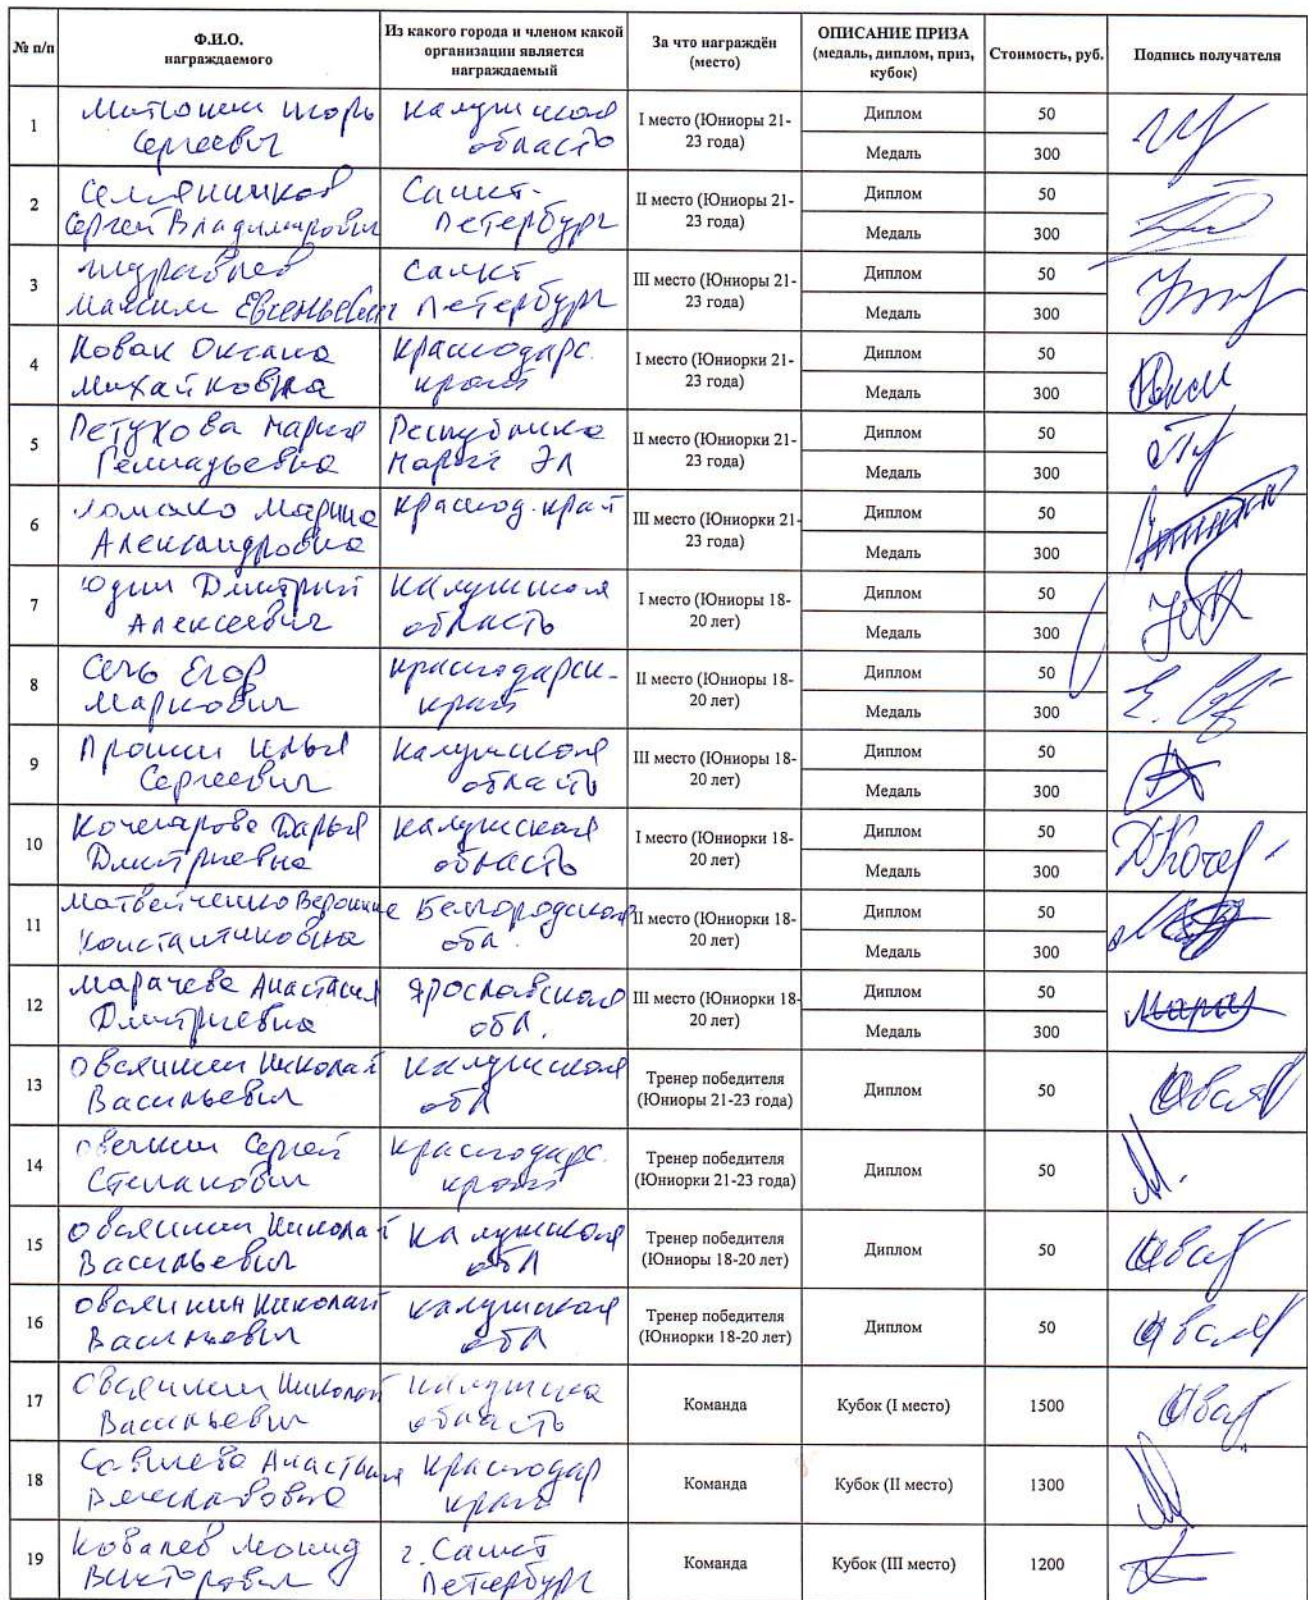 № п/п
Ф.И.О.
награждаемого
Из какого города и членом какой
организации является
награждаемый
За что награждён
(место)
ОПИСАНИЕ ПРИЗА
(медаль, диплом, приз,
кубок)
Стоимость, руб.
Подпись получателя
1
Игорь
Сергеевич
Калужская
область
I место (Юниоры 21-
23 года)
Диплом
50
Медаль
300
2
Сергей Владимирович
Санкт-
Петербург
II место (Юниоры 21-
23 года)
Диплом
50
Медаль
300
3
Максим Евгеньевич
Санкт
Петербург
III место (Юниоры 21-
23 года)
Диплом
50
Медаль
300
4
Новак Оксана
Михайловна
Краснодарс.
край
I место (Юниорки 21-
23 года)
Диплом
50
Медаль
300
5
Петухова Мария
Геннадьевна
Республика
Марий Эл
II место (Юниорки 21-
23 года)
Диплом
50
Медаль
300
6
Марина
Александровна
Краснод. край
III место (Юниорки 21-
23 года)
Диплом
50
Медаль
300
7
Юдин Дмитрий
Алексеевич
Калужская
область
I место (Юниоры 18-
20 лет)
Диплом
50
Медаль
300
8
Сечь Егор
Маркович
Краснодарск-
край
II место (Юниоры 18-
20 лет)
Диплом
50
Медаль
300
9
Прошин Илья
Сергеевич
Калужская
область
III место (Юниоры 18-
20 лет)
Диплом
50
Медаль
300
10
Кочегарова Дарья
Дмитриевна
Калужская
область
I место (Юниорки 18-
20 лет)
Диплом
50
Медаль
300
11
Матвейченко Вероника
Константиновна
Белгородская
обл.
II место (Юниорки 18-
20 лет)
Диплом
50
Медаль
300
12
Марачева Анастасия
Дмитриевна
Ярославская
обл.
III место (Юниорки 18-
20 лет)
Диплом
50
Медаль
300
13
Овсянкин Николай
Васильевич
Калужская
обл
Тренер победителя
(Юниоры 21-23 года)
Диплом
50
14
Овечкин Сергей
Степанович
Краснодарс.
край
Тренер победителя
(Юниорки 21-23 года)
Диплом
50
15
Овсянкин Николай
Васильевич
Калужская
обл
Тренер победителя
(Юниоры 18-20 лет)
Диплом
50
16
Овсянкин Николай
Васильевич
Калужская
обл
Тренер победителя
(Юниорки 18-20 лет)
Диплом
50
17
Овсянкин Николай
Васильевич
область
Команда
Кубок (I место)
1500
18
Анастасия
Краснодар
край
Команда
Кубок (II место)
1300
19
Ковалев Леонид
Викторович
г. Санкт
Петербург
Команда
Кубок (III место)
1200